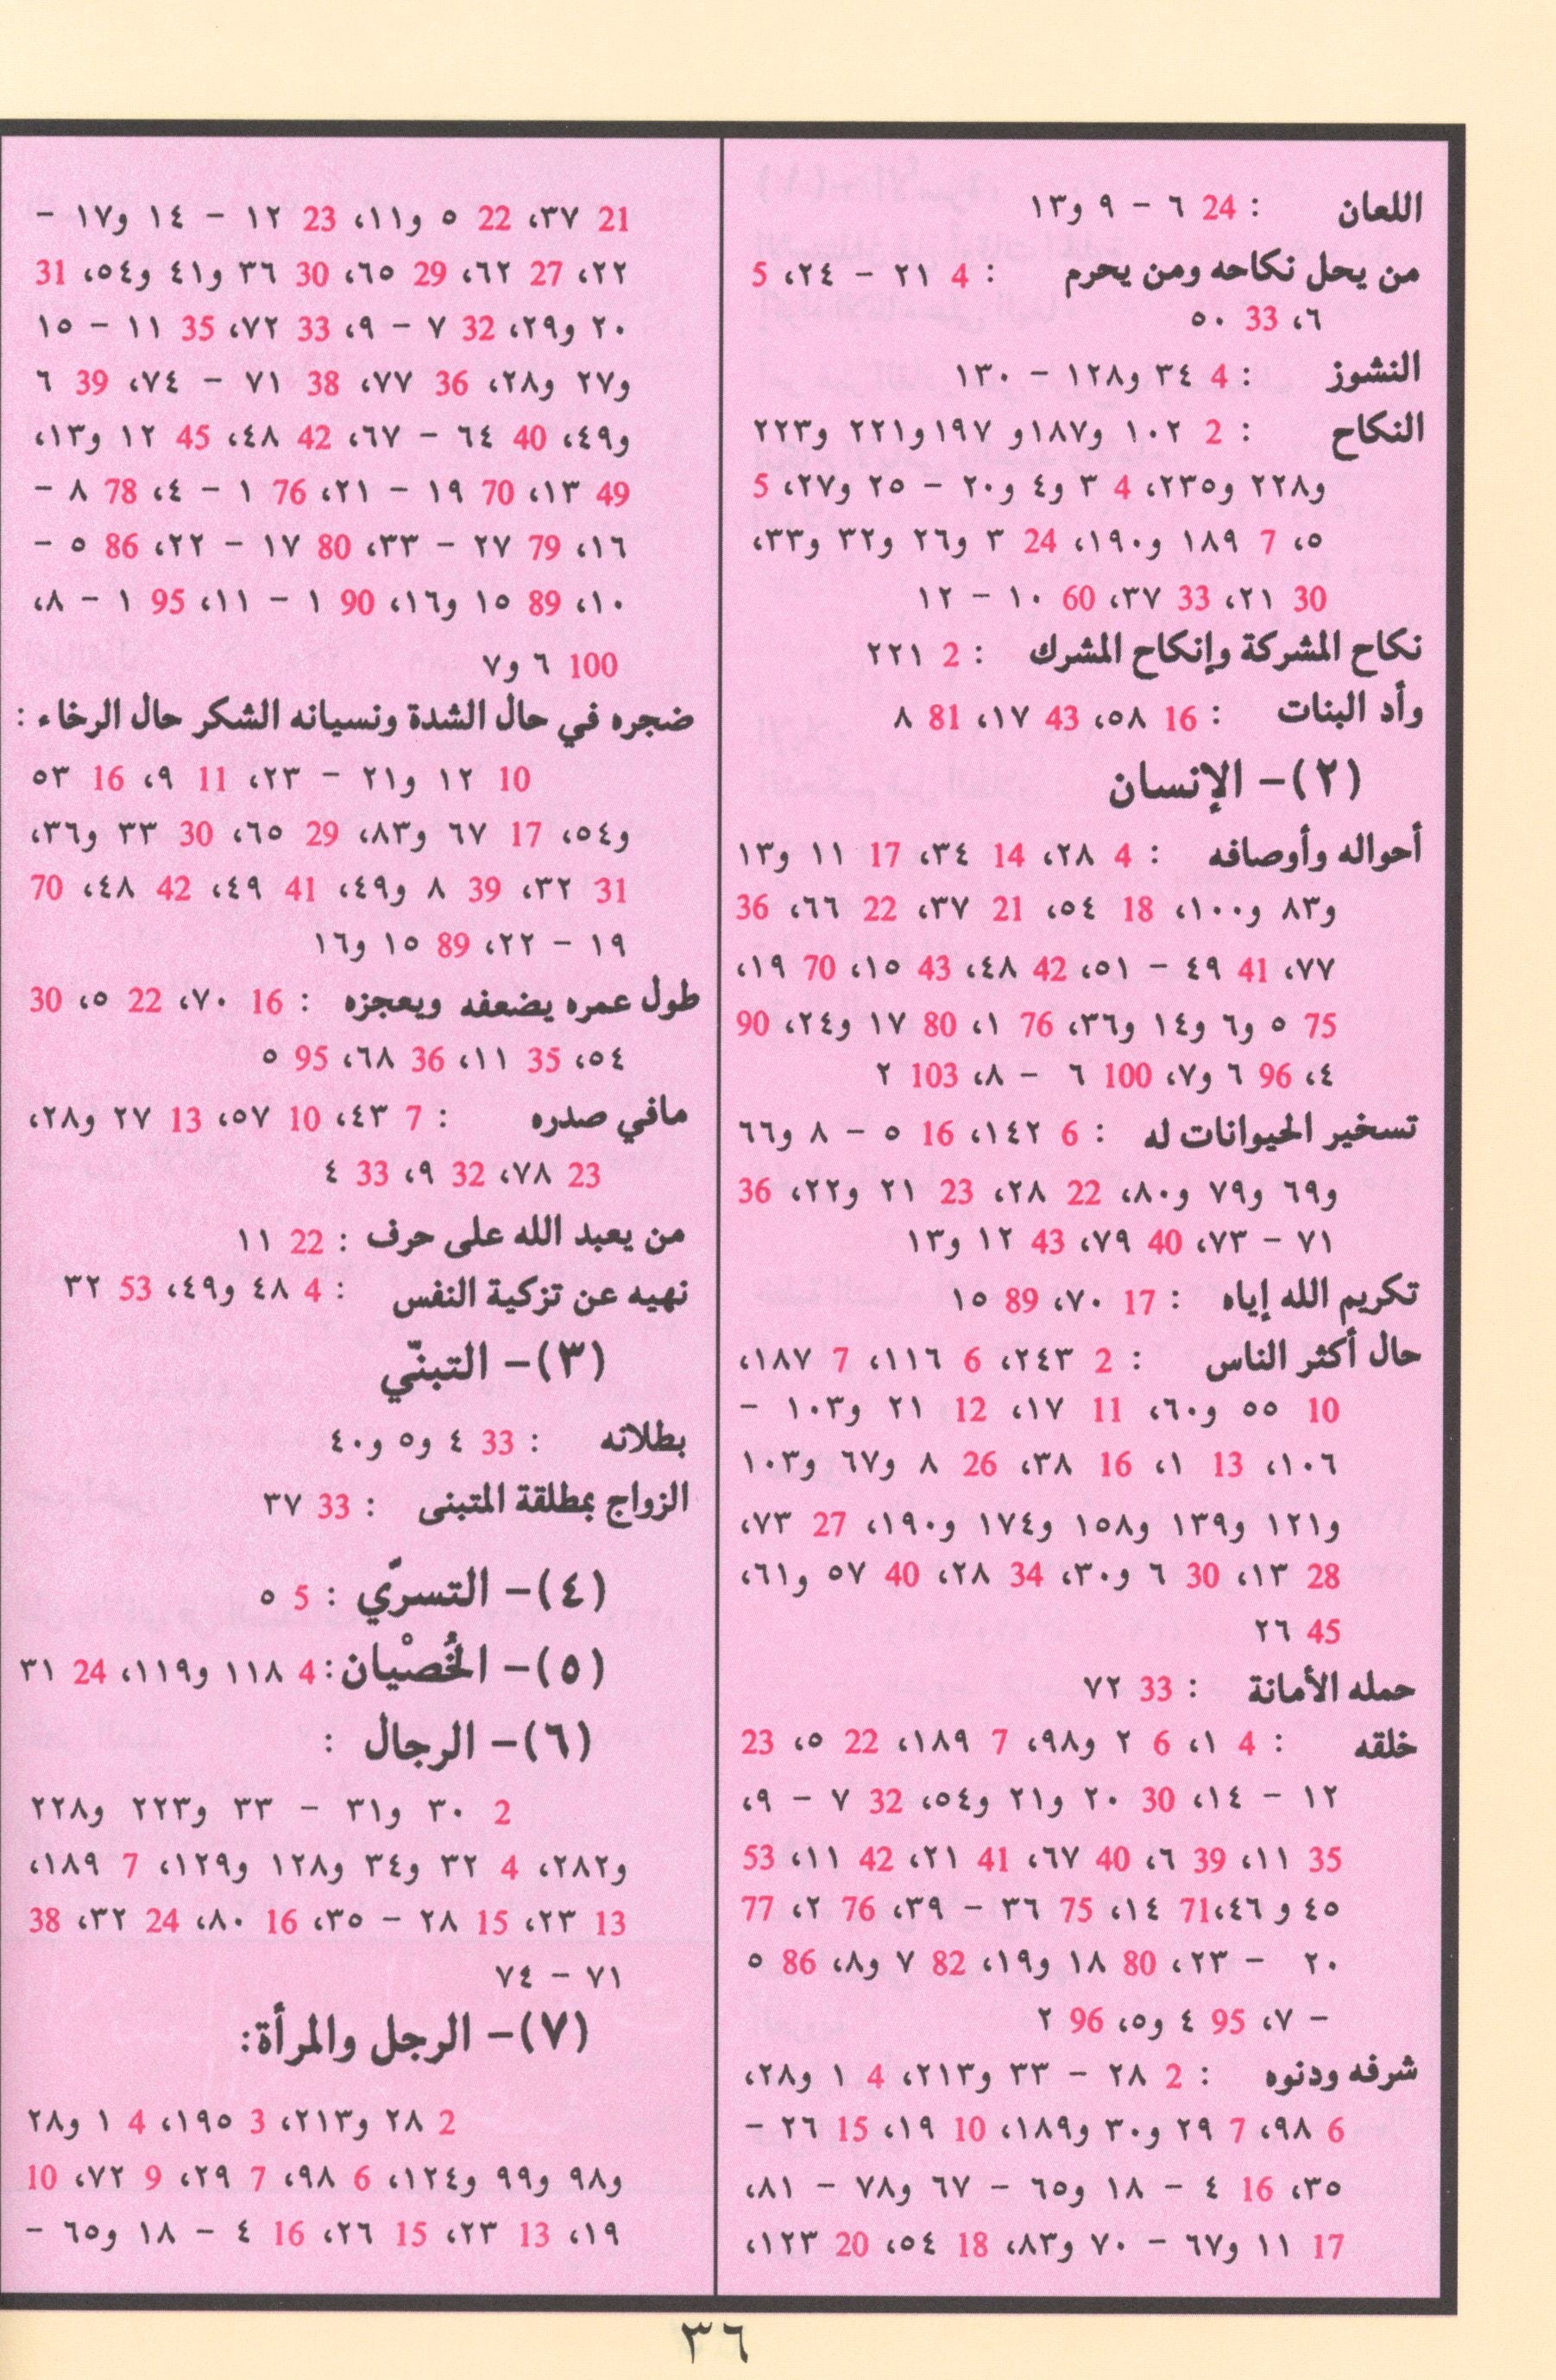 اللعان : 24 ٦ – ٩ و١٣
من يحل نكاحه ومن يحرم : 4 ٢١ – ٢٤، 5
٦، 33 ٥٠
النشوز : 4 ٣٤ و١٢٨ – ١٣٠
النكاح : 2 ١٠٢ و١٨٧و ١٩٧ و٢٢١ و٢٢٣
و٢٢٨ و٢٣٥، 4 ٣ و٤ و٢٠ – ٢٥ و٢٧، 5
٥، 7 ١٨٩ و١٩٠، 24 ٣ و٢٦ و٣٢ و٣٣،
30 ٢١، 33 ٣٧، 60 ١٠ – ١٢
نكاح المشركة وإنكاح المشرك : 2 ٢٢١
وأد البنات : 16 ٥٨، 43 ١٧، 81 ٨
(٢)– الإنسان
أحواله وأوصافه : 4 ٢٨، 14 ٣٤، 17 ١١ و١٣
و٨٣ و١٠٠، 18 ٥٤، 21 ٣٧، 22 ٦٦، 36
٧٧، 41 ٤٩ – ٥١، 42 ٤٨، 43 ١٥، 70 ١٩،
75 ٥ و٦ و١٤ و٣٦، 76 ١، 80 ١٧ و٢٤، 90
٤، 96 ٦ و٧، 100 ٦ – ٨، 103 ٢
تسخير الحيوانات له : 6 ١٤٢، 16 ٥ – ٨ و٦٦
و٦٩ و٧٩ و٨٠، 22 ٢٨، 23 ٢١ و٢٢، 36
٧١ – ٧٣، 40 ٧٩، 43 ١٢ و١٣
تكريم الله إياه : 17 ٧٠، 89 ١٥
حال أكثر الناس : 2 ٢٤٣، 6 ١١٦، 7 ١٨٧،
10 ٥٥ و٦٠، 11 ١٧، 12 ٢١ و١٠٣ –
١٠٦، 13 ١، 16 ٣٨، 26 ٨ و٦٧ و١٠٣
و١٢١ و١٣٩ و١٥٨ و١٧٤ و١٩٠، 27 ٧٣،
28 ١٣، 30 ٦ و٣٠، 34 ٢٨، 40 ٥٧ و٦١،
45 ٢٦
حمله الأمانة : 33 ٧٢
خلقه : 4 ١، 6 ٢ و٩٨، 7 ١٨٩، 22 ٥، 23
١٢ – ١٤، 30 ٢٠ و٢١ و٥٤، 32 ٧ – ٩،
35 ١١، 39 ٦، 40 ٦٧، 41 ٢١، 42 ١١، 53
٤٥ و ٤٦،71 ١٤، 75 ٣٦ – ٣٩، 76 ٢، 77
٢٠ – ٢٣، 80 ١٨ و١٩، 82 ٧ و٨، 86 ٥
– ٧، 95 ٤ و٥، 96 ٢
شرفه ودنوه : 2 ٢٨ – ٣٣ و٢١٣، 4 ١ و٢٨،
6 ٩٨، 7 ٢٩ و٣٠ و١٨٩، 10 ١٩، 15 ٢٦ –
٣٥، 16 ٤ – ١٨ و٦٥ – ٦٧ و٧٨ – ٨١،
17 ١١ و٦٧ – ٧٠ و٨٣، 18 ٥٤، 20 ١٢٣،
21 ٣٧، 22 ٥ و١١، 23 ١٢ – ١٤ و١٧ –
٢٢، 27 ٦٢، 29 ٦٥، 30 ٣٦ و٤١ و٥٤، 31
٢٠ و٢٩، 32 ٧ – ٩، 33 ٧٢، 35 ١١ – ١٥
و٢٧ و٢٨، 36 ٧٧، 38 ٧١ – ٧٤، 39 ٦
و٤٩، 40 ٦٤ – ٦٧، 42 ٤٨، 45 ١٢ و١٣،
49 ١٣، 70 ١٩ – ٢١، 76 ١ – ٤، 78 ٨ –
١٦، 79 ٢٧ – ٣٣، 80 ١٧ – ٢٢، 86 ٥ –
١٠، 89 ١٥ و١٦، 90 ١ – ١١، 95 ١ – ٨،
100 ٦ و٧
ضجره في حال الشدة ونسيانه الشكر حال الرخاء :
10 ١٢ و٢١ – ٢٣، 11 ٩، 16 ٥٣
و٥٤، 17 ٦٧ و٨٣، 29 ٦٥، 30 ٣٣ و٣٦،
31 ٣٢، 39 ٨ و٤٩، 41 ٤٩، 42 ٤٨، 70
١٩ – ٢٢، 89 ١٥ و١٦
طول عمره يضعفه ويعجزه : 16 ٧٠، 22 ٥، 30
٥٤، 35 ١١، 36 ٦٨، 95 ٥
مافي صدره : 7 ٤٣، 10 ٥٧، 13 ٢٧ و٢٨،
23 ٧٨، 32 ٩، 33 ٤
من يعبد الله على حرف : 22 ١١
نهيه عن تزكية النفس : 4 ٤٨ و٤٩، 53 ٣٢
(٣)– التبنّي
بطلانه : 33 ٤ و٥ و٤٠
الزواج بمطلقة المتبنى : 33 ٣٧
(٤)– التسرّي : 5 ٥
(٥)– الخُصْيان: 4 ١١٨ و١١٩، 24 ٣١
(٦)– الرجال :
2 ٣٠ و٣١ – ٣٣ و٢٢٣ و٢٢٨
و٢٨٢، 4 ٣٢ و٣٤ و١٢٨ و١٢٩، 7 ١٨٩،
13 ٢٣، 15 ٢٨ – ٣٥، 16 ٨٠، 24 ٣٢، 38
٧١ – ٧٤
(٧)– الرجل والمرأة:
2 ٢٨ و٢١٣، 3 ١٩٥، 4 ١ و٢٨
و٩٨ و٩٩ و١٢٤، 6 ٩٨، 7 ٢٩، 9 ٧٢، 10
١٩، 13 ٢٣، 15 ٢٦، 16 ٤ – ١٨ و٦٥ –
٣٦